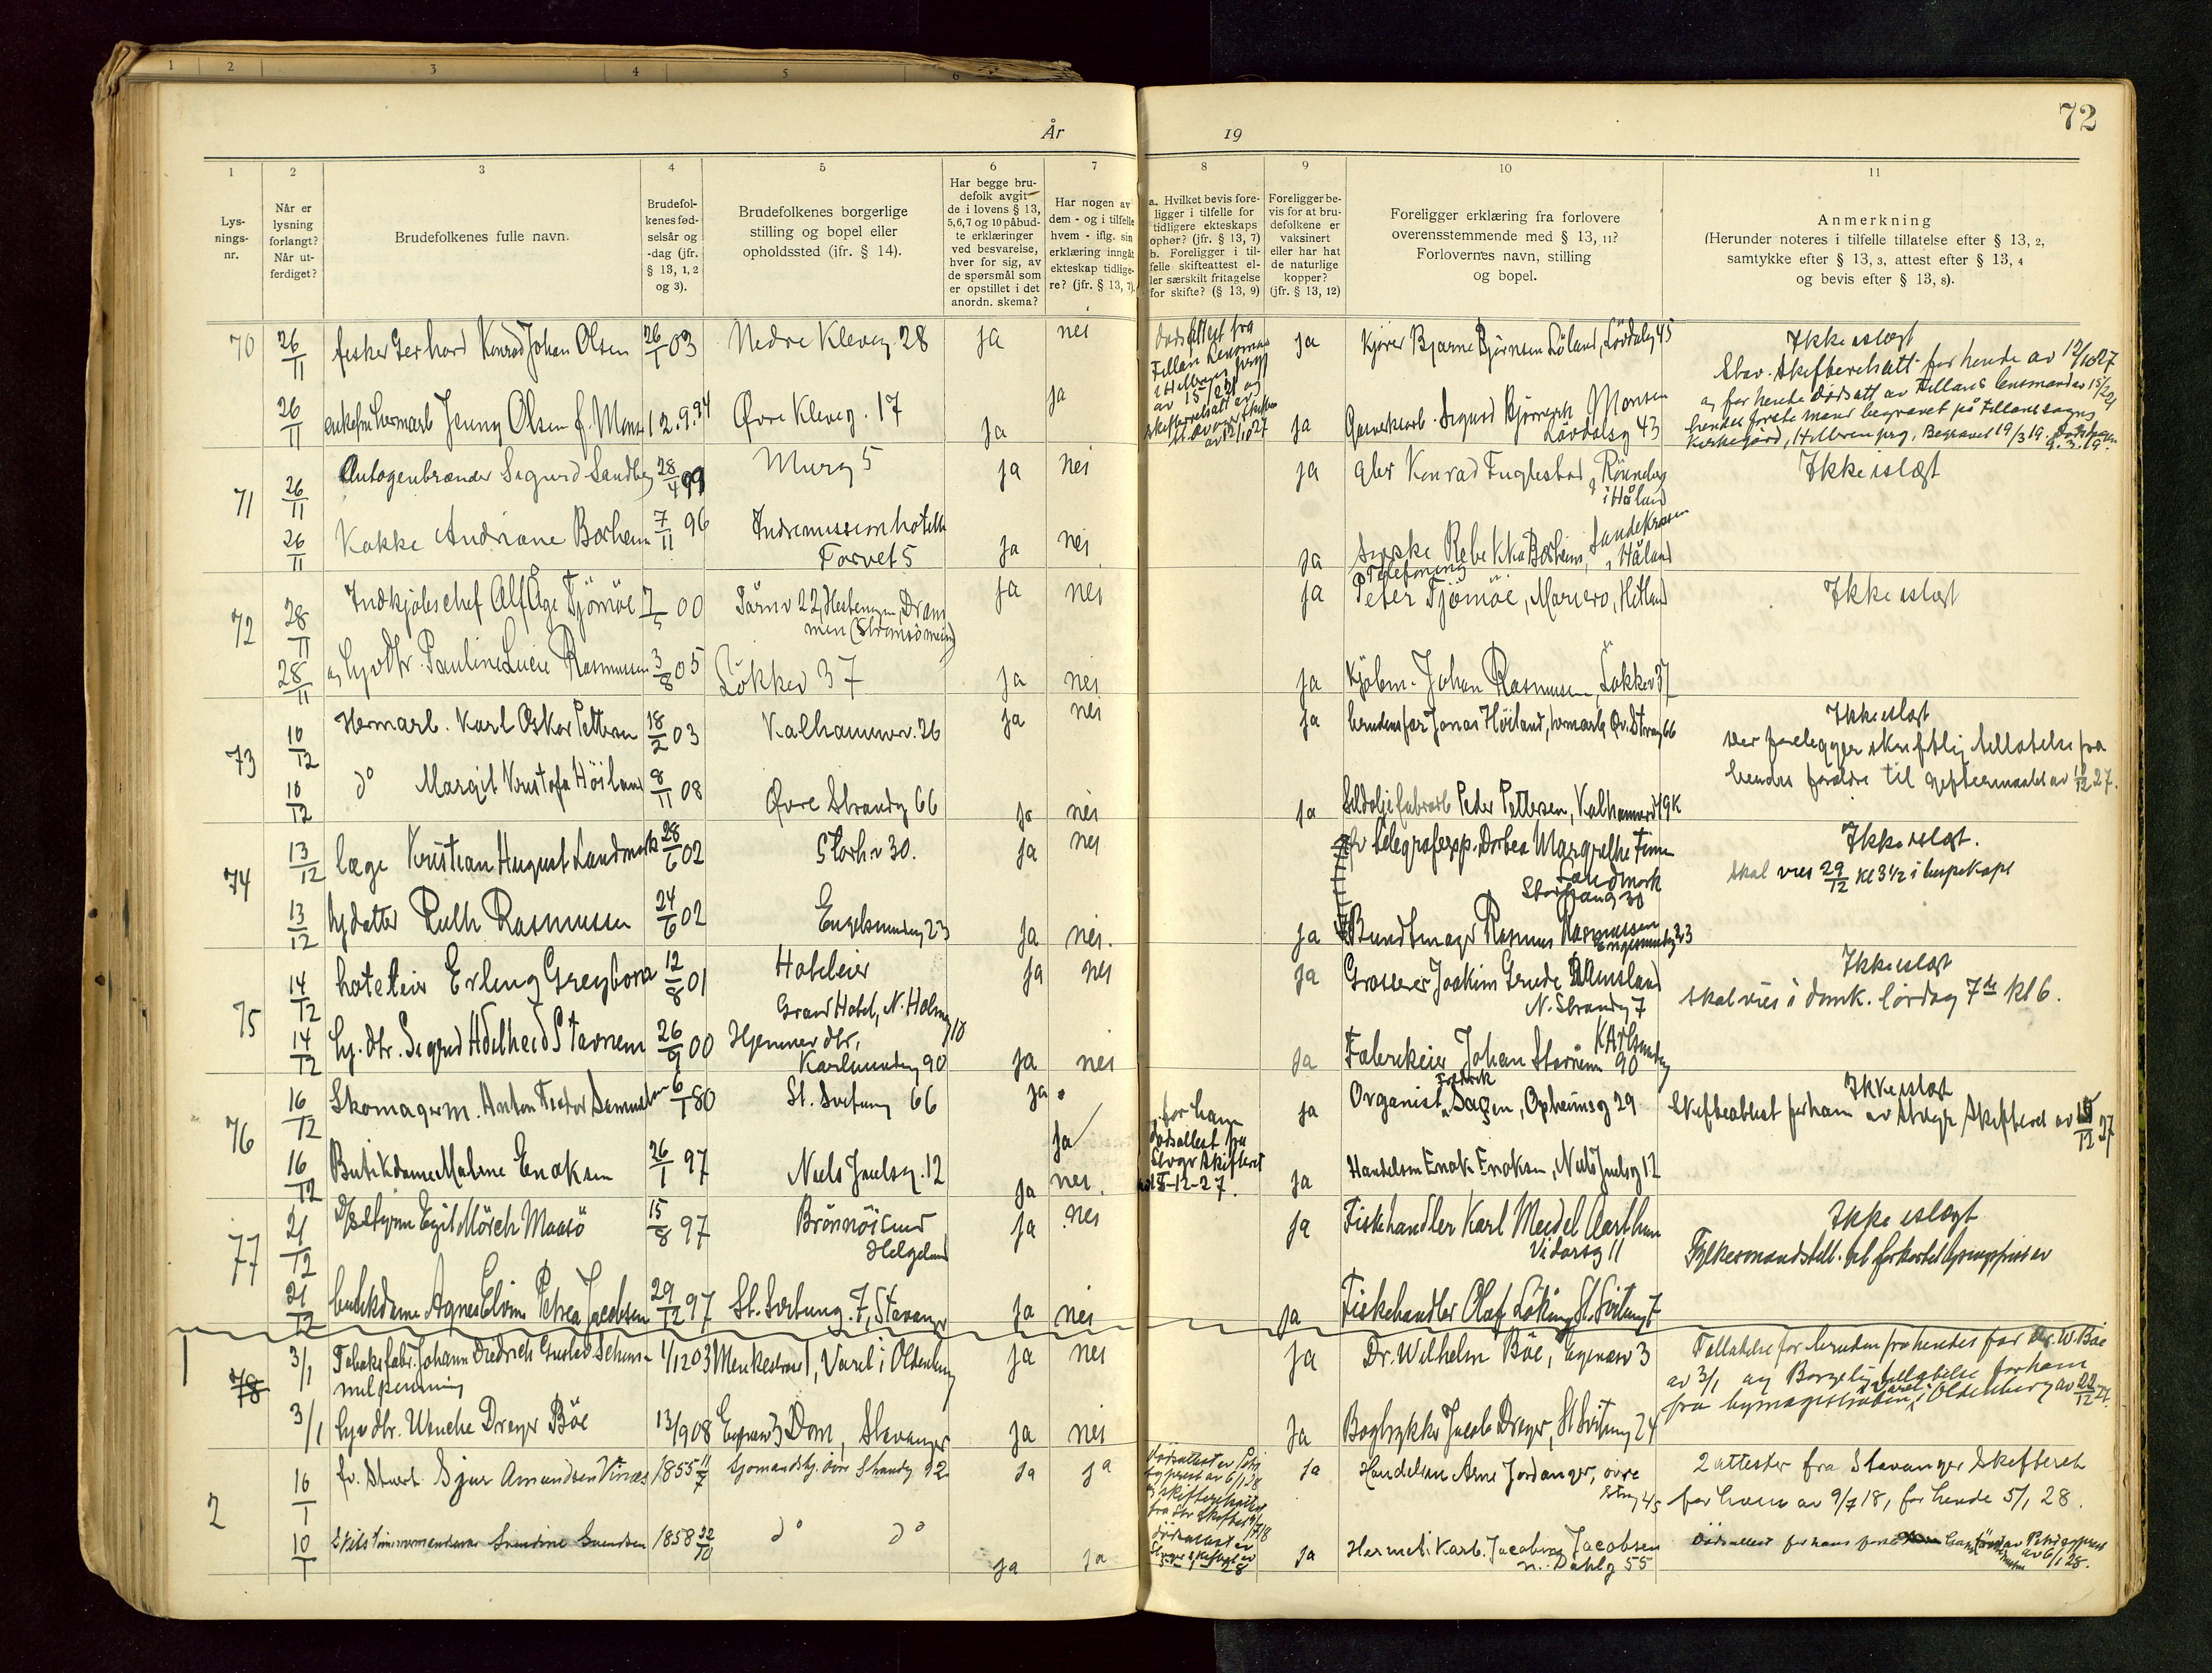 1 2 3 4 5 6
År 19
72
1 2 3 4 5 6 7 8 9 10 11
Lys-
nings-
nr.
Når er
lysning
forlangt?
Når ut-
ferdiget?
Brudefolkenes fulle navn.
Brudefol-
kenes fød-
selsår og
-dag (jfr.
§ 13, 1, 2
og 3).
Brudefolkenes borgerlige
stilling og bopel eller
opholdssted (ifr. § 14).
Har begge bru-
defolk avgit
de i lovens § 13,
5,6,7 og 10 påbud-
te erklæringer
ved besvarelse,
hver for sig, av
de spørsmål som
er opstillet i det
anordn. skema?
Har nogen av
dem - og i tilfelle
hvem - iflg. sin
erklæring inngåt
ekteskap tidlige-
re? (jfr. § 13, 7).
a. Hvilket bevis fore-
ligger i tilfelle for
tidligere ekteskaps
ophør? (jfr. § 13, 7)
b. Foreligger i til-
felle skifteattest el-
ler særskilt fritagelse
for skifte? (§ 13, 9)
Foreligger be-
vis for at bru-
defolkene er
vaksinert
eller har hat
de naturlige
kopper?
(jfr. § 13, 12)
Foreligger erklæring fra forlovere
overensstemmende med § 13, 11?
Forlovernes navn, stilling
og bopel.
Anmerkning
(Herunder noteres i tilfelle tillatelse efter § 13, 2,
samtykke efter § 13, 3, attest efter § 13, 4
og bevis efter § 13, 8).
70 26/11 fisker Gerhard Konrad Johan Olsen 26/1 03 Nedre Kleveg. 28 ja nei
dødsattest fra
ja Kjører Bjarne Bjørnsen Löland, Lövdalsg 45
Ikke i slægt
Stav. Skifteretsatt. for hende av 12/10 27
26/11 Jenny Olsen f. 12.9.94 Øvre Kleveg. 17 ja ja
av 15/2 21 og
av 12/10 27
ja Sigurd Monsen
Lövdalsg 43
og for hende dødsatt av lensmand av 15/2 21
hendes første mand begravet på sogns
Kirkegård, prg. Begravet 19/3 19.
9.3.19.
71 26/11 Autogenbrænder Sigurd Sandberg 28/4 99 Murg 5 ja nei ja Konrad Fuglestad, i Håland
Ikke i slægt
26/11 Kokke Andriane Borheim 7/11 96 Indremissionhotellet
Torvet 5 ja nei ja Rebekka Borheim, Håland
72 28/11 Indkjöbschef Alf Åge Tjömöe 7/5 00 22, Hestengen, Dram
men (Strømsö ja nei ja Peter Tjömöe, Mariero, Hetland
Ikke i slægt
28/11 og hjvdtr. Pauline Lucie Rasmussen 3/8 05 Lökkev 37 ja nei ja Kjöbm. Johan Rasmussen, Lökkev 37
73 10/12 Hermarb. Karl Oskar Pettersen 18/2 03 Kalhammerv. 26 ja nei ja brudens far Jonas Höiland, hermarb. Øv. Strandg 66
Ikke i slægt
Der foreligger skriftlig tillatelse fra
hendes foreldre til giftermaalet av 10/12 27.
10/12 do Margit Kristofa Höiland 8/11 08 Øvre Strandg 66 ja nei ja Sildoljefabrarb Peder Pettersen, Kalhammerv 19K
74 13/12 læge Kristian August Landmark 28/6 02 Storh.v 30. ja nei
fr telegrafexp. Dorbea Margrethe Finne
Landmark
Storhaug 30
Ikke i slægt.
skal vies 29/12 kl 3½ i bispekapl
13/12 hjdatter Ruth Rasmussen 24/6 02 Engelsmindeg 23 ja nei. ja Bundtmager Rasmus Rasmussen
Engelsmindeg 23
75 14/12 hoteleier Erling Gresborn 12/8 01 Hoteleier
Grand Hotel, N. Holmeg 18 ja nei ja Grosserer Joakim Grude Aamsland
N. Strandg 7
Ikke i slægt
skal vies i domk. lördag 7de kl 6.
14/12 hj. dtr. Sigrid Adelheid Stavnem 26/9 00 Hjemmev. dtr,
Karlsmindeg 90 ja nei ja Fabrikeier Johan Stavnem Karlsmindeg
90
76 16/12 Skomagerm. Anton Teodor Samuelsen 6/1 80 St. Svitung 66 ja
ja
for ham
dødsattest fra
Stvgr skifteret
av 15-12-27.
ja Organist Fredrik Sagen, Opheimsg 29
Ikke i slægt
Skifteattest for ham av Stvgr. Skifteret av 15/12 27
16/12 Butikdame Malene Enoksen 26/1 97 Niels Juelsg. 12 ja nei. ja Handelsm Enok Enoksen, Niels Juelsg 12
77 21/12 Egil Mörch Maasö 15/8 97 Brönnöisund
Helgeland ja nei ja Fiskehandler Karl Meidel Aarthun
Vidarsg 11
Ikke i slægt
Fylkesmandstill. til forkortet lysningsfrist av
21/12 butikdame Agnes Elvine Petrea Jacobsen 29/12 97 St. Svitung. 7, Stavanger ja nei ja Fiskehandler Olaf Löking, St. Svitung 7
1 78 3/1 Tabaksfabr. Johann Diedrich Gustav Schim-
melpenning 1/12 03 Menkestrasse 1, Varel i Oldenburg ja nei ja Dr. Wilhelm Böe, Eiganesv 3
Tillatelse for bruden fra hendes far Dr. W. Böe
av 3/1 og Borgerlig tillatelse for ham
fra bymagistraten, Varel i Oldenburg av 22/12 27.
3/1 hjvdtr. Wenche Dreyer Böe 13/9 08 Eiganesv 3 Dom, Stavanger ja nei ja Bogtrykker Jacob Dreyer, St Svitung 24
2 10/1 fv. Stuert Sjur Amundsen Vinæs 1855 11/7 Sjømandshj. övre Strandg 92 ja ja
dødsattest av Petri
sogneprest av 6/1 28
fra Stv skifteret 9/7 18
dødsattest av
28
ja Handelsm Arne Jordanger, övre
Strg 45
2 attester fra Stavanger Skifteret
for ham av 9/7 18, for hende 5/1 28.
10/1 Skibstömmermandsenke 1858 22/10 do do ja ja ja Hermetikarb. Jacobsen
n. Dahlg 55
Dödsattest for hans av Petri sogneprest
av 6/1 28.